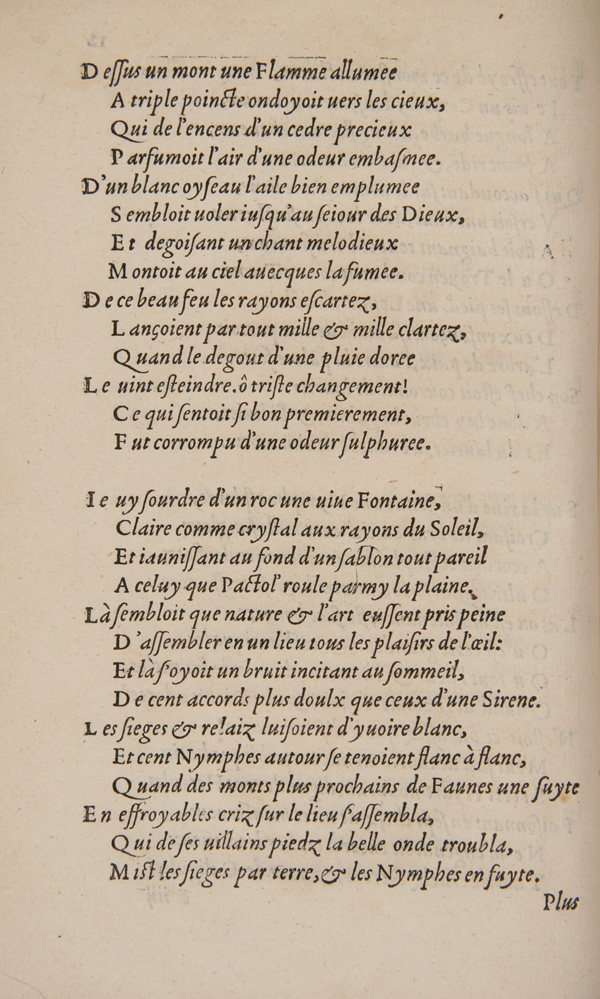 Deſſus un mont une Flamme allumee
A triple poincte ondoyoit uers les cieux,
Qui de l'encens d'un cedre precieux
Parfumoit l'air d'une odeur embaſmee.
D'un blanc oyſeau l'aile bien emplumee
Sembloit uoler iuſqu'au ſeiour des Dieux,
Et degoiſant un chant melodieux
Montoit au ciel auecques la fumee.
De ce beau feu les rayons eſcartez,
Lançoient par tout mille & mille clartez,
Quand le degout d'une pluie doree
Le uint eſteindre. ô triſte changement!
Ce qui ſentoit ſi bon premierement,
Fut corrompu d'une odeur ſulphuree.
Ie uy ſourdre d'un roc une uiue Fontaine,
Claire comme cryſtal aux rayons du Soleil,
Et iauniſſant au fond d'un ſablon tout pareil
A celuy que Pactol' roule parmy la plaine.
Là ſembloit que nature & l'art euſſent pris peine
D'aſſembler en un lieu tous les plaiſirs de l'œil:
Et là ſ'oyoit un bruit incitant au ſommeil,
De cent accords plus doulx que ceux d'une Sirene.
Les ſieges & relaiz luiſoient d'yuoire blanc,
Et cent Nymphes autour ſe tenoient flanc à flanc,
Quand des monts plus prochains de Faunes une ſuyte
En effroyables criz ſur le lieu ſ'aſſembla,
Qui de ſes uillains piedz la belle onde troubla,
Miſt les ſieges par terre, & les Nymphes en fuyte.
Plus